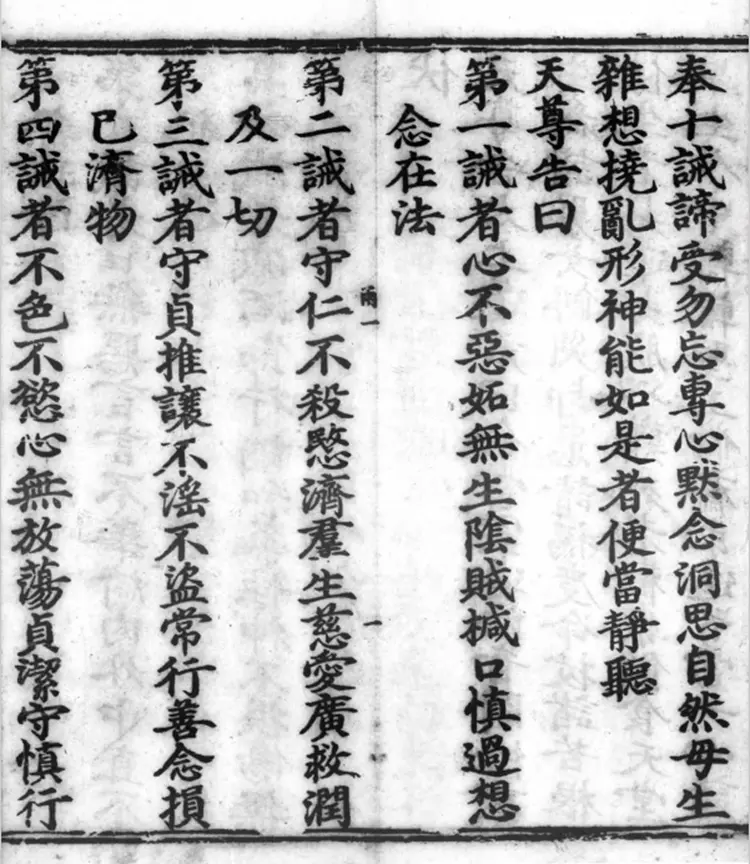 奉十誡諦受勿忘專心默念洞思自然毋生
雜想撓亂形神能如是者便當靜聽
天尊告曰
第一誡者心不惡妬無生陰賊椷口慎過想
念在法
雨一 一
第二誡者守仁不殺愍濟羣生慈愛廣救潤
及一切
第三誡者守貞推讓不滛不盜常行善念損
已濟物
第四誡者不色不慾心無放蕩貞潔守慎行